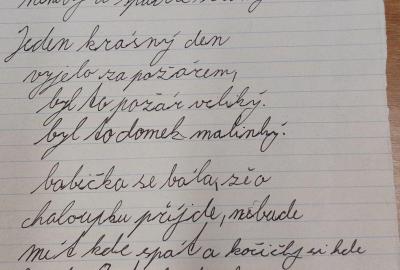 Jeden krásný den
vyjelo za požárem,
byl to požár veliký.
byl to domek malinký.
babička se bála, že o
chaloupku příjde, nebude
mít kde spát a kočičky si kde